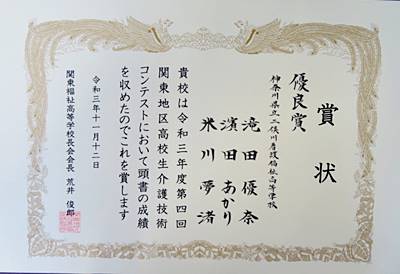 賞状
優良賞
神奈川県立二俣川看護福祉高等学校
滝田優奈
濱田あかり
米川夢渚
貴校は令和三年度第四回
関東地区高校生介護技術
コンテストにおいて頭書の成績
を収めたのでこれを賞します
令和三年十一月十二日
関東福祉高等学校長会会長 荒井俊郎